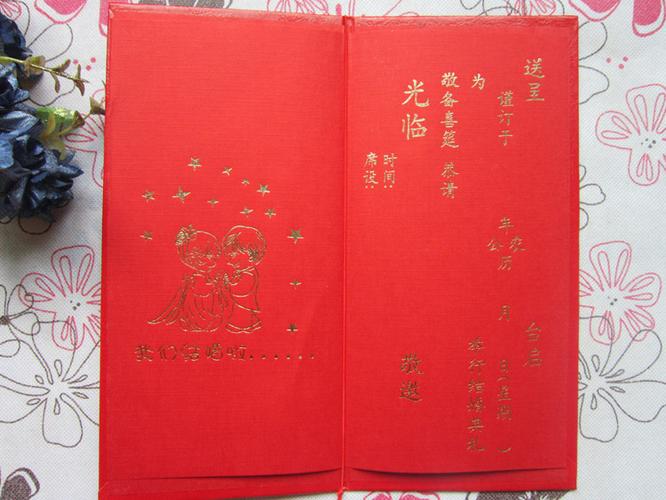 我们结婚啦......
送呈 台启
谨订于 年 月 日(星期 )
公 农
历
为 举行结婚典礼
敬备喜筵 恭请
光临 敬邀
时间:
席设: